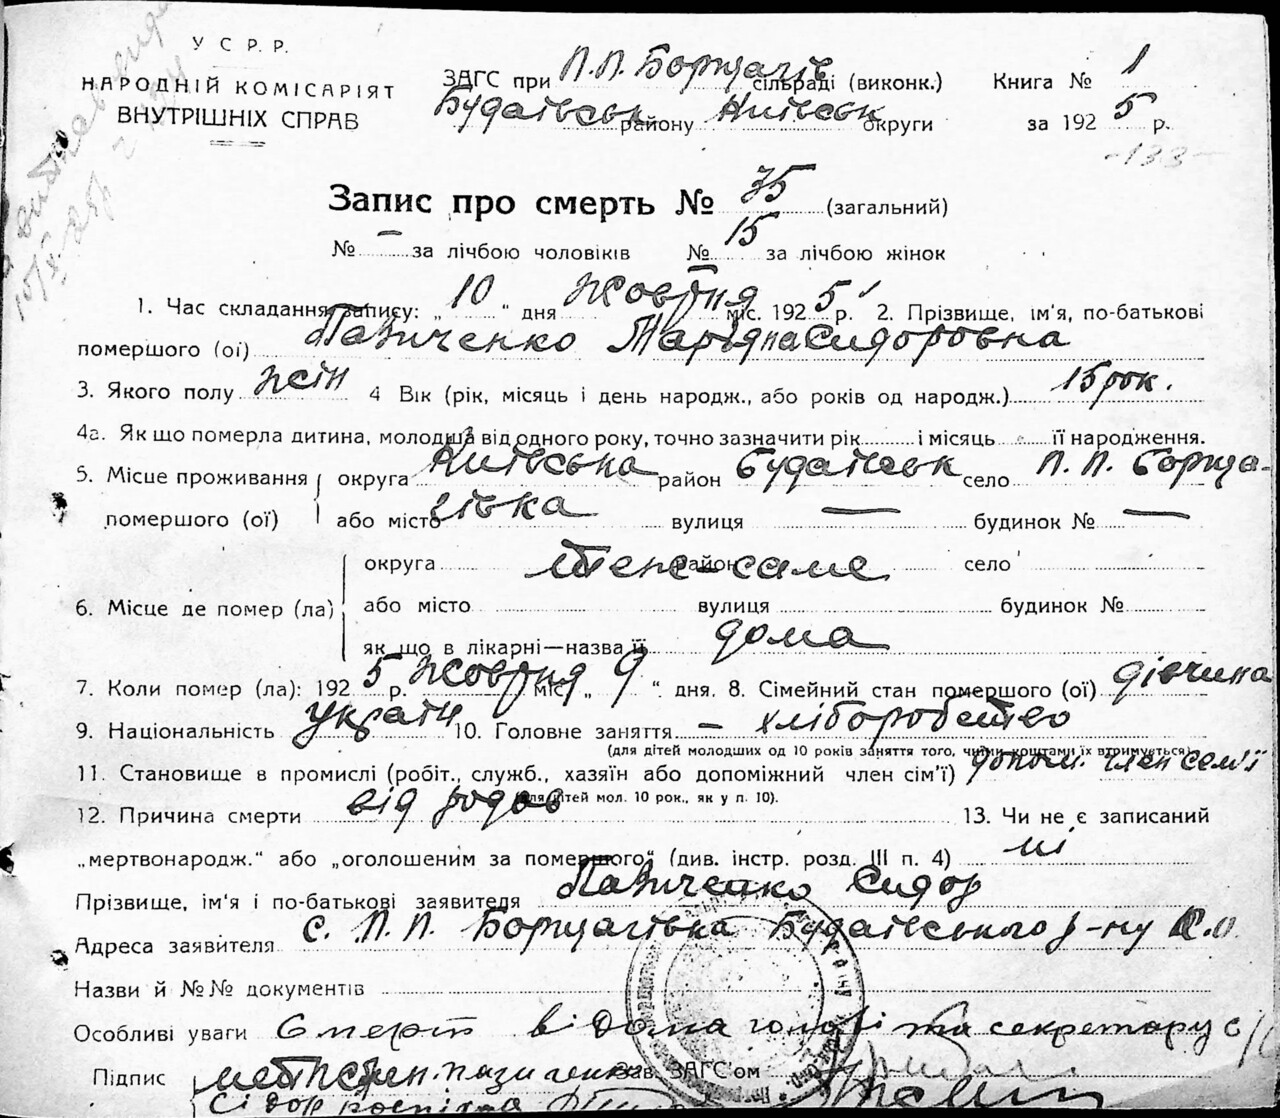 У С Р. Р.
НАРОДНІЙ КОМІСАРІЯТ
ВНУТРІШНІХ СПРАВ
ЗАГС при П.П. Борщагів сільраді (виконк.)
Будаївськ району Київськ округи
Книга № 1
за 1925 р.
-133-
Запис про смерть № 75 (загальний)
№ — за лічбою чоловіків № 15 за лічбою жінок
1. Час складання запису: „10“ дня Жовтня міс. 1925 р. 2. Прізвище, ім'я, по-батькові
помершого (ої) Сидоровна
3. Якого полу жін 4 Вік (рік, місяць і день народж., або років од народж.) 15 рок.
4а. Як що померла дитина, молодша від одного року, точно зазначити рік і місяць її народження.
5. Місце проживання помершого (ої) округа Київська район Будаївськ село П. П. Борща-
або місто гівка вулиця — будинок № —
6. Місце де помер (ла) округа район село теж-саме
або місто вулиця будинок №
як що в лікарні—назва її дома
7. Коли помер (ла): 1925 р. Жовтня міс. „9“ дня. 8. Сімейний стан помершого (ої) дівчина
9. Національність україн 10. Головне заняття — хліборобство
(для дітей молодших од 10 років заняття того, чиїми коштами їх втримується)
11. Становище в промислі (робіт., служб., хазяїн або допоміжний член сім'ї) допом. член сем'ї
(для дітей мол. 10 рок., як у п. 10).
12. Причина смерти від родов 13. Чи не є записаний
„мертвонародж.“ або „оголошеним за помершого“ (див. інстр. розд. III п. 4) ні
Прізвище, ім'я і по-батькові заявителя Сидор
Адреса заявителя с. П. П. Борщагівка Будаївського р-ну К.О.
Назви й №№ документів
Особливі уваги Смерть відома голові та секретару с/
Підпис Зав. ЗАГС'ом
Сідор